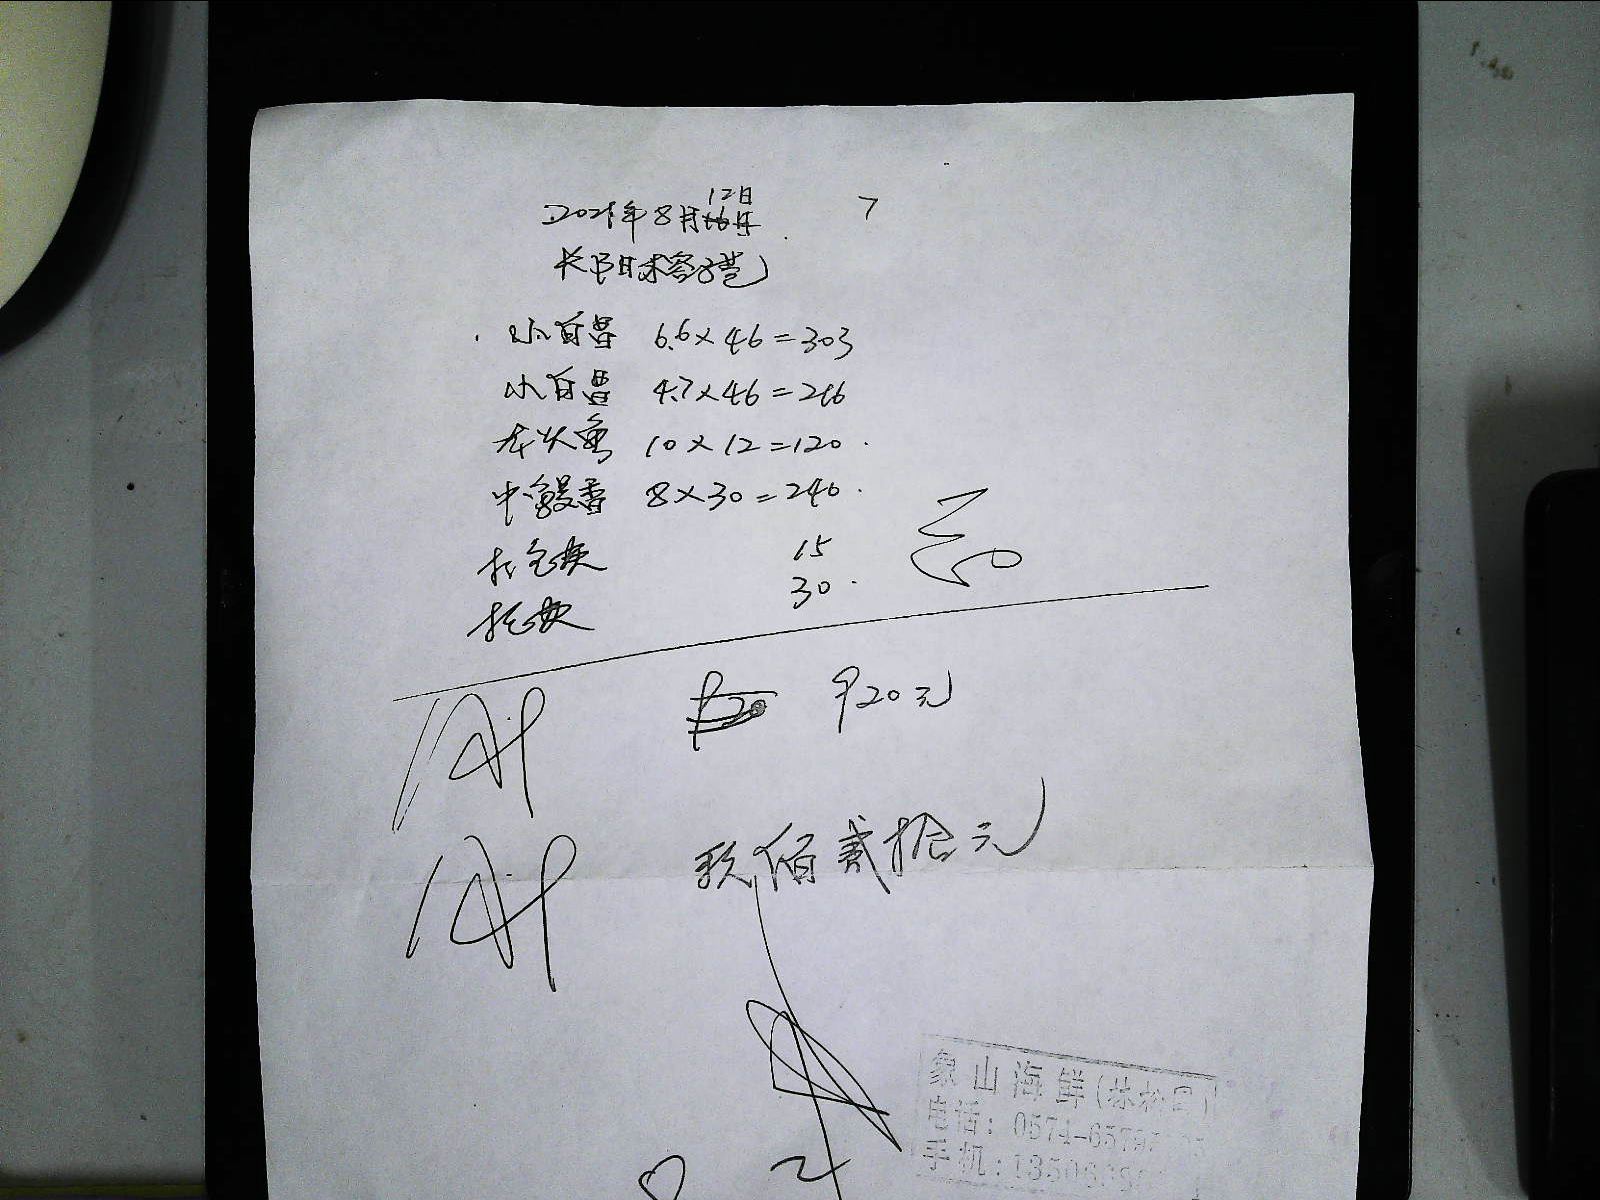 2021年8月12日
7
小白鲳 6.6×46=303
小白鲳 4.7×46=216
龙头鱼 10×12=120
中鳗香 8×30=240
打包费 15
托费 30
920元
玖佰贰拾元
象山海鲜(林
电话: 0574-6579
手机:13506